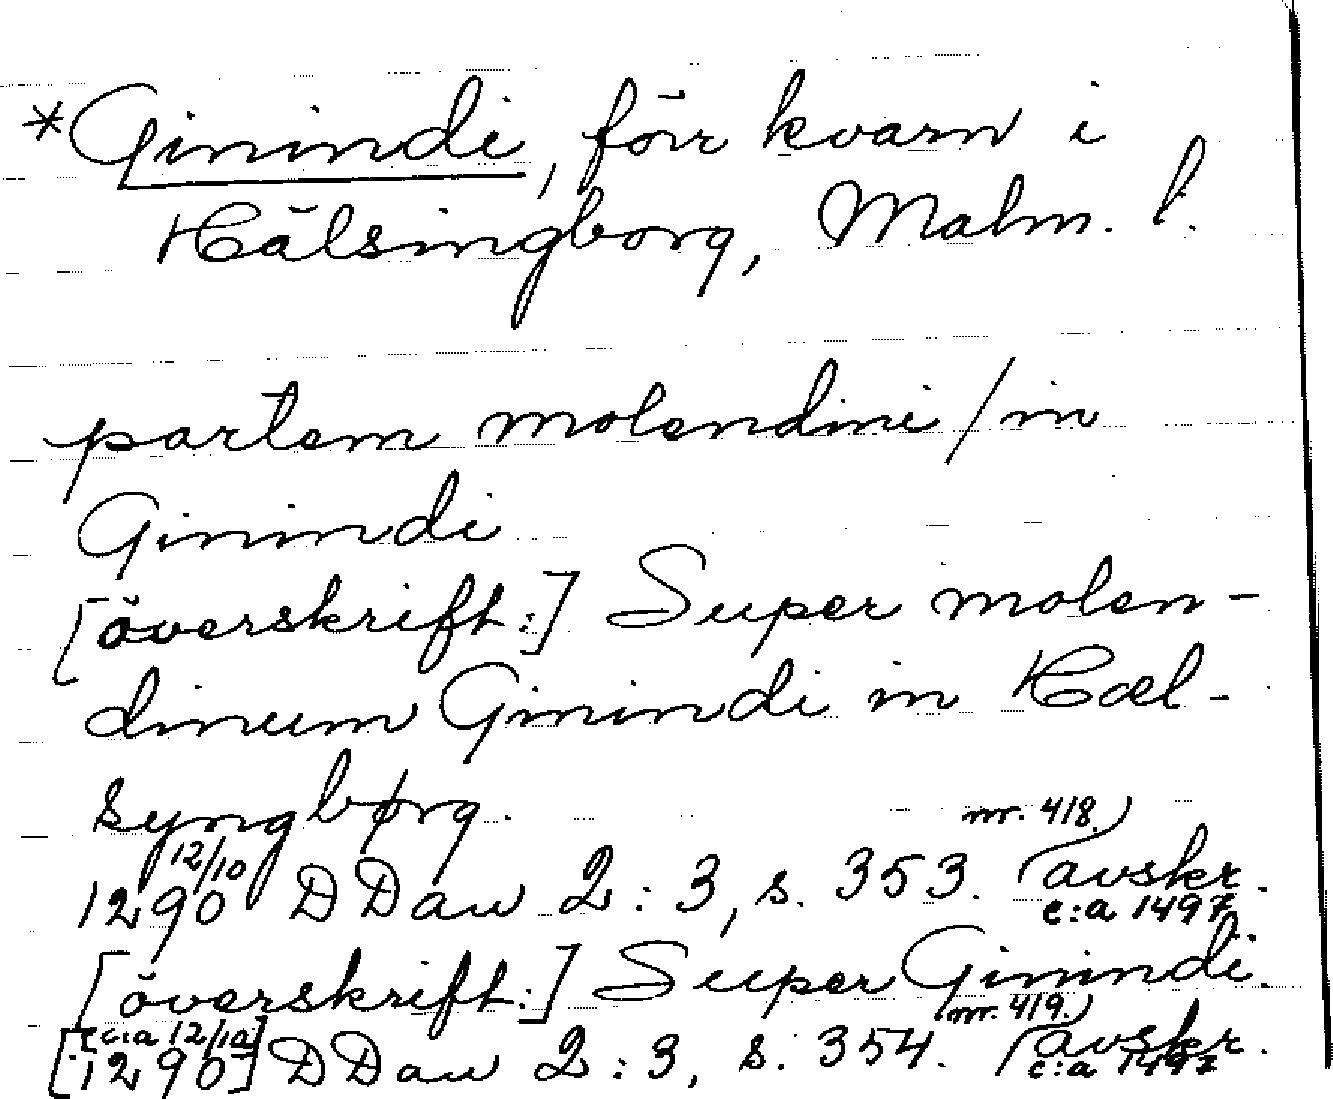 *Ginindi, förr kvarn i
Hälsingborg, Malm. l.
partem molendini / in
Ginindi
[överskrift:] Super molen-
dinum Ginindi in Hæl-
syngbørg.
12/10 1290 DDan 2:3, s. 353. nr. 418. (avskr. c:a 1497)
[överskrift:] Super Ginindi.
[c:a 12/10] [1290] DDan 2:3, s. 354. nr. 419. (avskr. c:a 1497)